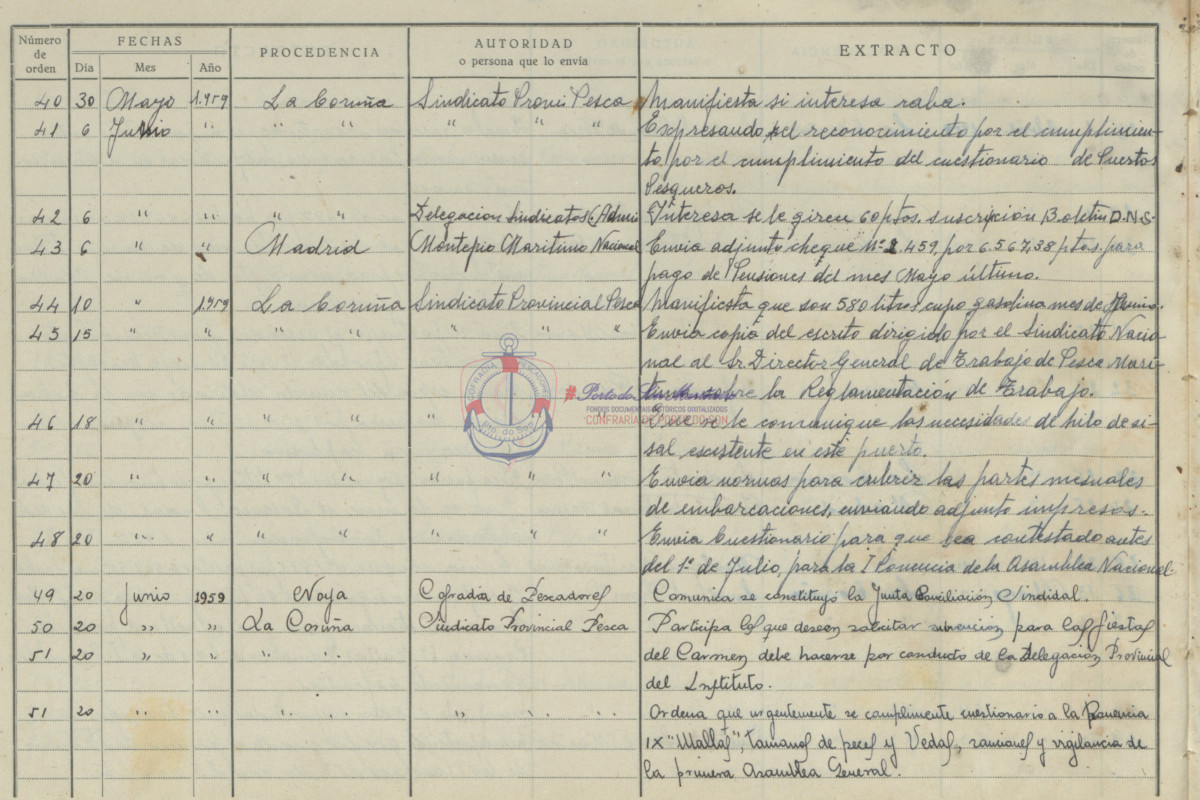 Número de orden FECHAS PROCEDENCIA AUTORIDAD o persona que lo envía EXTRACTO
Día Mes Año
40 30 Mayo 1.959 La Coruña Sindicato Prov. Pesca Manifiesta si interesa raba.
41 6 Junio " " " " " " Expresando el reconocimiento por el cumplimien-
to por el cumplimiento del cuestionario de Puertos
Pesqueros.
42 6 " " " " Delegacion Sindicatos (Admin Interesa se le giren 60 ptos. suscripción Boletin D.N.S-
43 6 " " Madrid Montepio Maritimo Nacional Envia adjunto cheque Nº 2.459, por 6.567,38 ptos. para
pago de Pensiones del mes Mayo último.
44 10 " 1.959 La Coruña Sindicato Provincial Pesca Manifiesta que son 580 litros cupo gasolina mes de Junio.
45 15 " " " " " " " Envia copia del escrito dirigido por el Sindicato Nacio-
nal al Sr. Director General de Trabajo de Pesca Marí-
tima sobre la Reglamentación de Trabajo.
46 18 " " " " Que se le comunique las necesidades de hilo de si-
sal escistente en este puerto.
47 20 " " " " " " " Envia normas para cubrir las partes mesuales
de embarcaciones, enviando adjunto impresos.-
48 20 " " " " " " " Envia Cuestionario para que sea contestado antes
del 1º de Julio, para la I Ponencia de la Asamblea Nacional-
49 20 Junio 1959 Noya Cofradia de Pescadores Comunica se constituyó la Junta Conciliación Sindidal.
50 20 " " La Coruña Sindicato Provincial Pesca Participa los que deseen solicitar subvención para las fiestas
51 20 " " " " del Carmen, debe hacerse por conducto de la Delegación Provincial
del Instituto.
51 20 " " " " " " " Ordena que urgentemente se cumplimente cuestionario a la Ponencia
IX "Mallas", tamanos de peces y Vedas, sanciones y vigilancia de
la primera Asamblea General.
COFRADIA PESCADORES
Pto. do Son
FONDOS DOCUMENTAIS HISTÓRICOS DIGITALIZADOS
CONFRARÍA DE PORTO DO SON